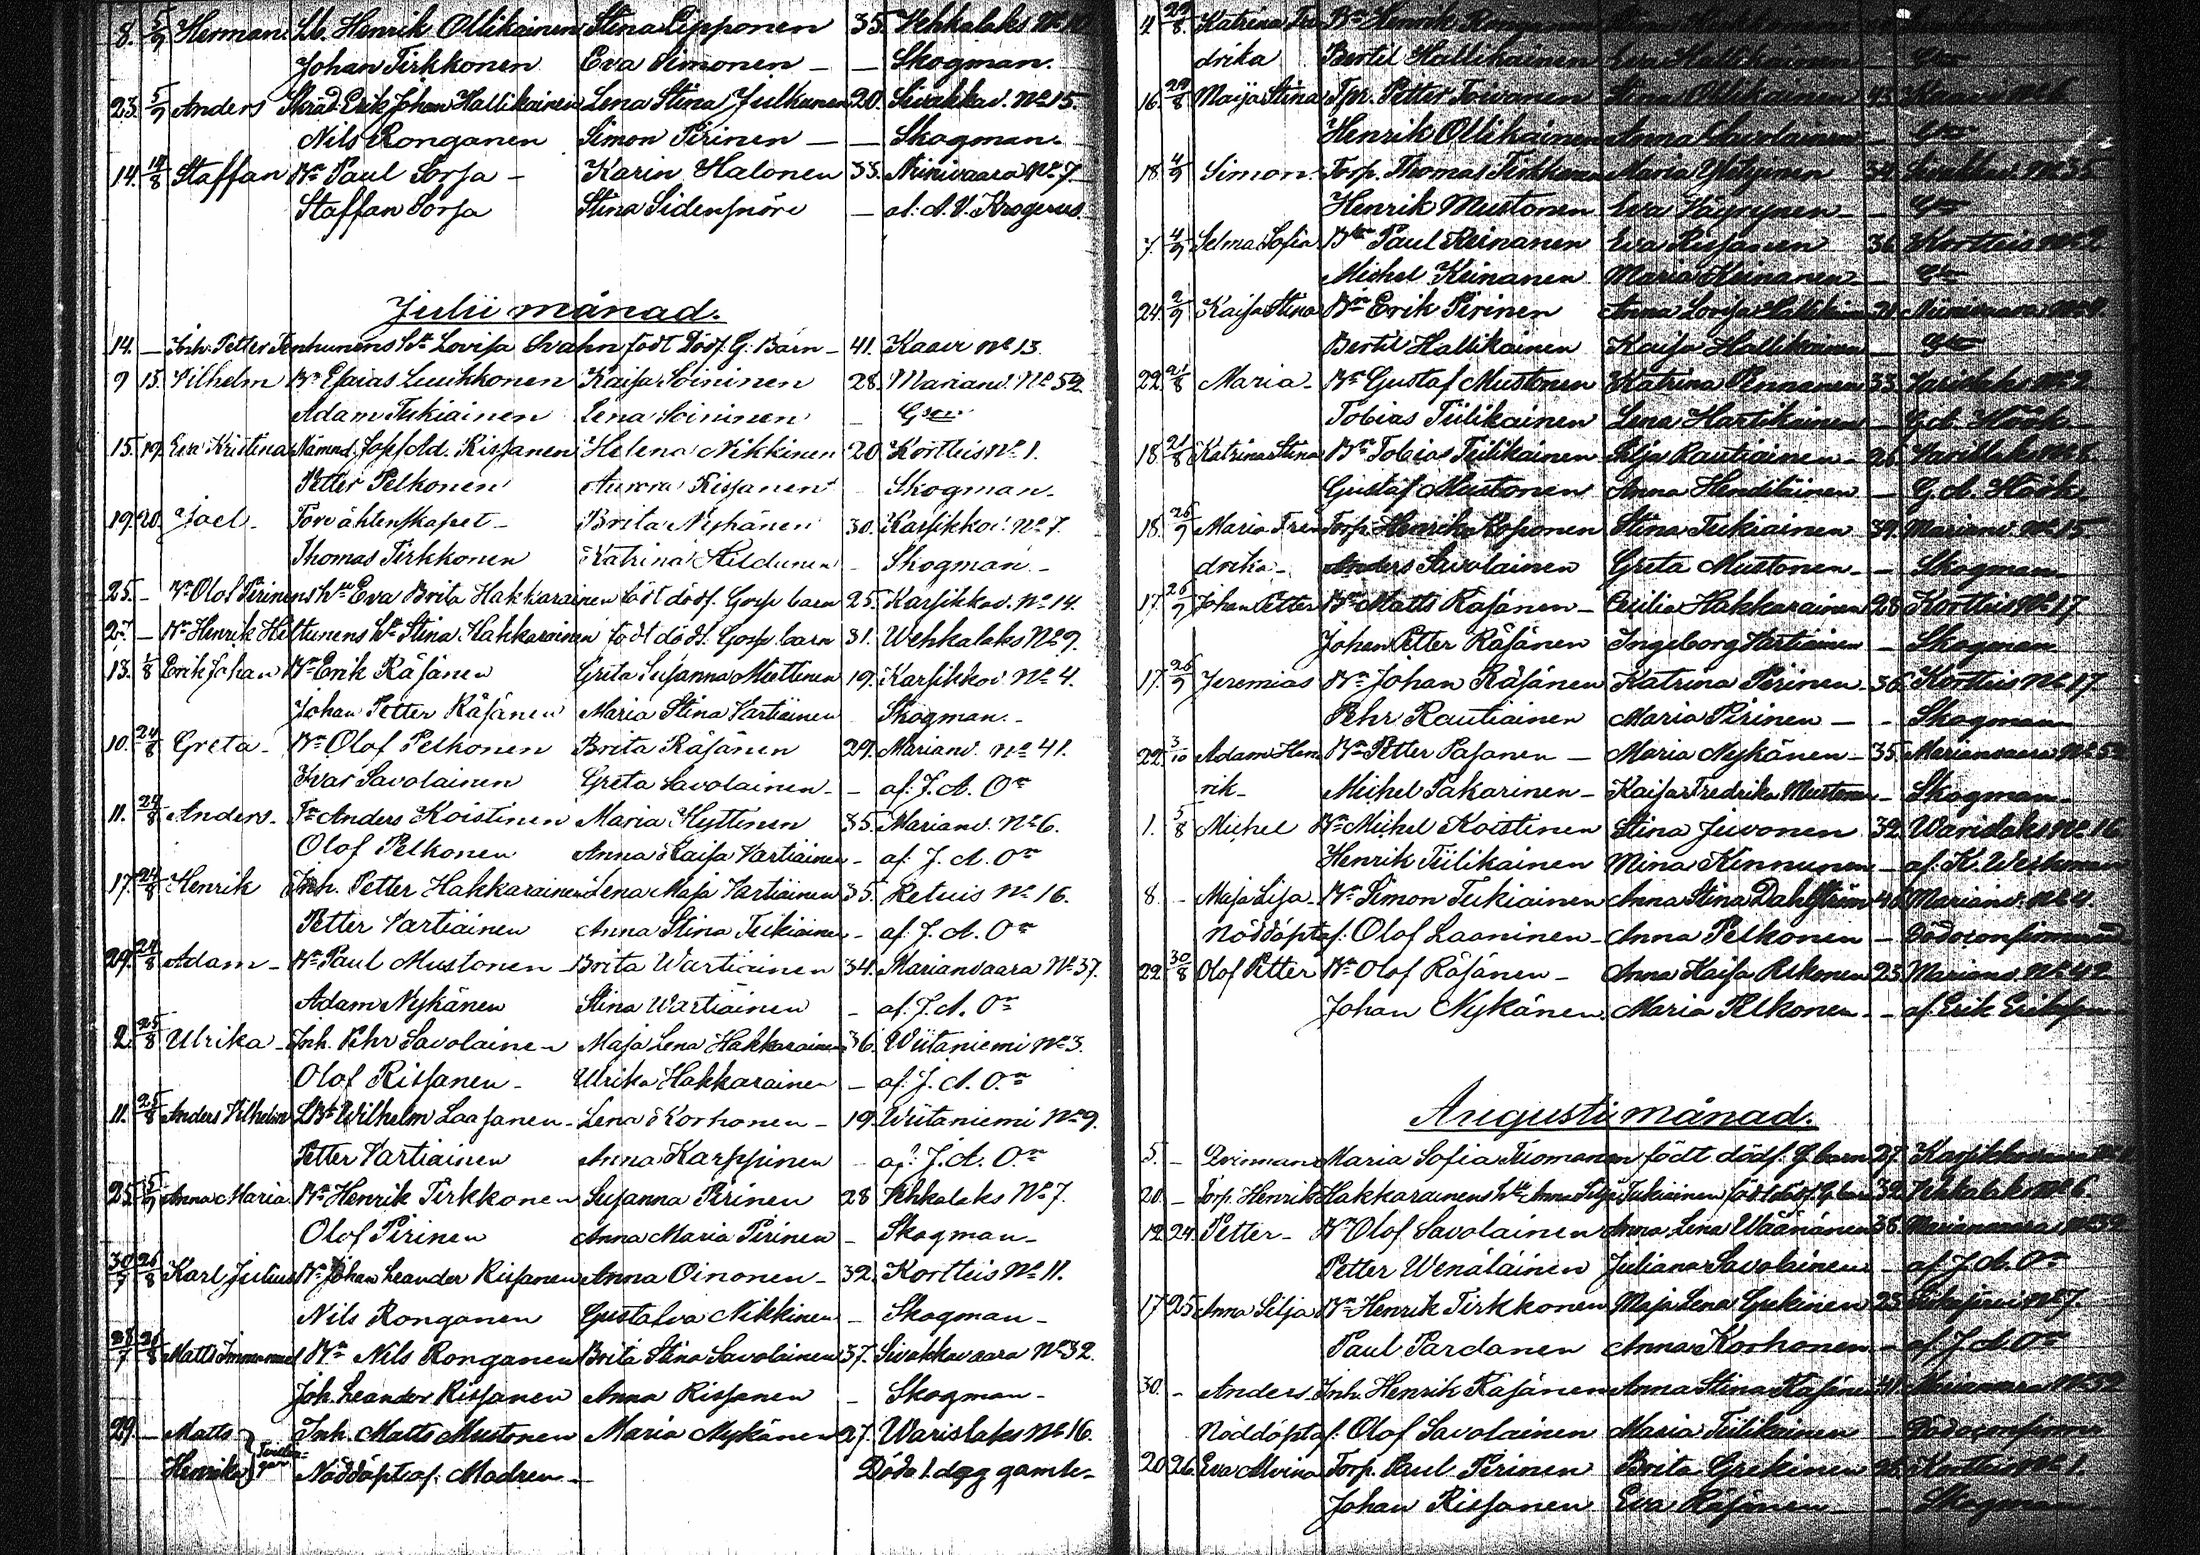 8. 5/7 Herman Lb. Henrik Ollikainen Stina Lipponen 35. Vehkalaks No
Johan Tirkkonen Eva Simonen — — Skogman.
23. 5/7 Anders Skräd. Erik Johan Hallikainen Lena Stina Julkunen 20. Sivakkav. No 15.
Nils Ronganen Simon Pirinen — — Skogman.
14. 14/8 Staffan Bn Paul Sorsa - Karin Halonen 33. Niinivaara No 7.
Staffan Sorsa Stina Sidensnöre — af: A. V. Krogerus.
Julii månad.
14. — Inh. Petter Tenhunens Hu Lovisa Svahn födt Dödf. G: Barn — 41. Kaavi No 13.
9 15. Vilhelm Bn Esaias Luukkonen Kaisa Soininen 28. Marianv. No 52
Adam Tukiainen Lena Soininen
15. 19. Eva Kristina Nämnd. Josf Ad. Rissanen Helena Nikkinen 20. Kortteis No 1.
Petter Pelkonen Aurora Rissanen - Skogman.
19. 20. Joel - Torv. Brita Nykänen 30. Karsikkov. No 7.
Thomas Tirkkonen Katrina Hildunen - Skogman. -
25. — Bn Olof Pirinens Hu Eva Brita Hakkarainen födt dödf. Goss barn 25. Karsikkov. No 14.
27. — Bn Henrik Hiltunens Hu Stina Hakkarainen födt dödf. Goss barn 31. Wehkalaks No 9.
13. 1/8 Erik Johan Bn Erik Räsänen Greta Susanna Miettinen 19. Karsikkov. No 4.
Johan Petter Räsänen Maria Stina Vartiainen Skogman. -
10. 24/8 Greta - Bn Olof Pelkonen Brita Räsänen 29. Marianv. No 41.
Ivar Savolainen Greta Savolainen - — af: J. A. On
11. 24/8 Anders - Anders Koistinen Maria Hyttinen 35. Marianv. No 6.
Olof Pelkonen Anna Kaisa Vartiainen - af: J. A. On
17. 24/8 Henrik Inh. Petter Hakkarainen Lena Maja Vartiainen 35. Retuis No 16.
Petter Vartiainen Anna Stina Tukiainen - af. J. A. On
29. 24/8 Adam - Bn Paul Mustonen Brita Wartiainen 34. Marianvaara No 37.
Adam Nykänen Stina Wartiainen - af: J. A. On
2. 25/8 Ulrika - Inh. Pehr Savolainen Maja Lena Hakkarainen 36. Wiitaniemi No 3.
Olof Rissanen - Ulrika Hakkarainen — af. J. A. On
11. 25/8 Anders Vilhelm LBn Wilhelm Laasanen - Lena Korhonen - 19. Wiitaniemi No 9.
Petter Vartiainen Anna Karppinen - af: J. A. On
25. 5/7 Anna Maria Bn Henrik Tirkkonen Susanna Pirinen 28 Vehkalaks No 7.
Olof Pirinen Anna Maria Pirinen - Skogman -
30/7 26/8 Karl Julius Bn Johan Leander Rissanen Anna Oinonen - 32. Kortteis No 11.
Nils Ronganen Gustava Nikkinen - Skogman -
28/7 26/8 Matts Immanuel Bn Nils Ronganen Brita Stina Savolainen 37. Sivakkavaara No 32.
Joh. Leander Rissanen Anna Rissanen - Skogman -
29. — Matts Inh. Matts Mustonen Maria Nykänen 27. Warislaks No 16.
Henrik Nöddöpt af: Modren - Döda 1 dag gamla -
4 29/8 Katrina Fre Bn Henrik
drika Bertil Hallikainen Eva Hallikainen
16. 29/8 Maija Stina Tpr. Petter Toivanen Stina Ollikainen
Henrik Ollikainen Anna Savolainen
18. 4/9 Simon Torp. Thomas Tirkkonen Maria 34. Sivakkav. No 35
Henrik Mustonen Eva Väyrynen -
7. 4/9 Selma Sofia Bn Paul Reinanen Eva Rissanen 36. Kortteis No
Michel Keinanen Maria Keinanen -
24. 2/9 Kaisa Stina Bn Erik Pirinen Anna Lovisa Hallikain Niinivaara No 4.
Bertil Hallikainen Kaisa Hallikainen -
22. 21/8 Maria - Bn Gustaf Mustonen Katrina Pennanen 33. Varislaks No 2
Tobias Tiilikainen Lena Hartikainen - G. A. Höök
18. 21/8 Katrina Stina Bn Tobias Tiilikainen Silja Rautiainen - 26. Varislaks No 6
Gustaf Mustonen Anna - G. A. Höök
18. 26/9 Maria Fre Torp. Henrik Koponen Stina Tukiainen 39. Marianv. No 15.
drika - Anders Savolainen Greta Mustonen - - Skogman
17. 26/9 Johan Petter Bn Matts Räsänen - Cecilia Hakkarainen 28 Kortteis No 17
Johan Petter Räsänen Ingeborg Vartiainen - Skogman
17. 26/9 Jeremias Bn Johan Räsänen Katrina Pirinen 36. Kortteis No 17
Pehr Rautiainen Maria Pirinen — - Skogman
22. 3/10 Adam Hen Bn Petter Pasanen - Maria Nykänen - 35. Marianvaara No 52
rik - Michel Pakarinen - Kaisa Fredrika Mustonen - Skogman -
1. 5/8 Michel Bn Michel Koistinen Stina Juvonen 32. Warislaks No 16
Henrik Tiilikainen Mina Kinnunen - af: K. Weckman
8 - Maja Lisa - Bn Simon Tukiainen Anna Stina Dahlström 40 Marianv. No 4.
Nöddöpt af: Olof Laaninen - Anna Pelkonen -
22. 30/8 Olof Petter Bn Olof Räsänen - Anna Kaisa Pelkonen 23. Marianv. No 42
Johan Nykänen Maria Pelkonen - - af: Erik Eriksson
Augusti månad.
5. - Qvinnan Maria Sofia Tuomanen födt dödf. G. barn 27.
20. - Torp. Henrik Hakkarainens Hu Anna Silja Tukiainen födt dödf. G. barn 32. Vehkalaks No 6.
12 24. Petter - Bn Olof Savolainen Anna Lena Wäänänen 38. Marianvaara No 32
Petter Wenäläinen Juliana Savolainen - af J. A. On
17. 25. Anna Silja Bn Henrik Tirkkonen Maja Lena Grekinen 23. No 7.
Paul Pardanen Anna Korhonen - af J A On
30. - Anders Inh. Henrik Räsänen Anna Stina Räsänen 41.
Nöddöpt af: Olof Savolainen Maria Tiilikainen -
20. 26. Eva Alvina Torp. Paul Pirinen Brita Grekinen Kortteis No 1.
Johan Rissanen Eva Räsänen - Skogman